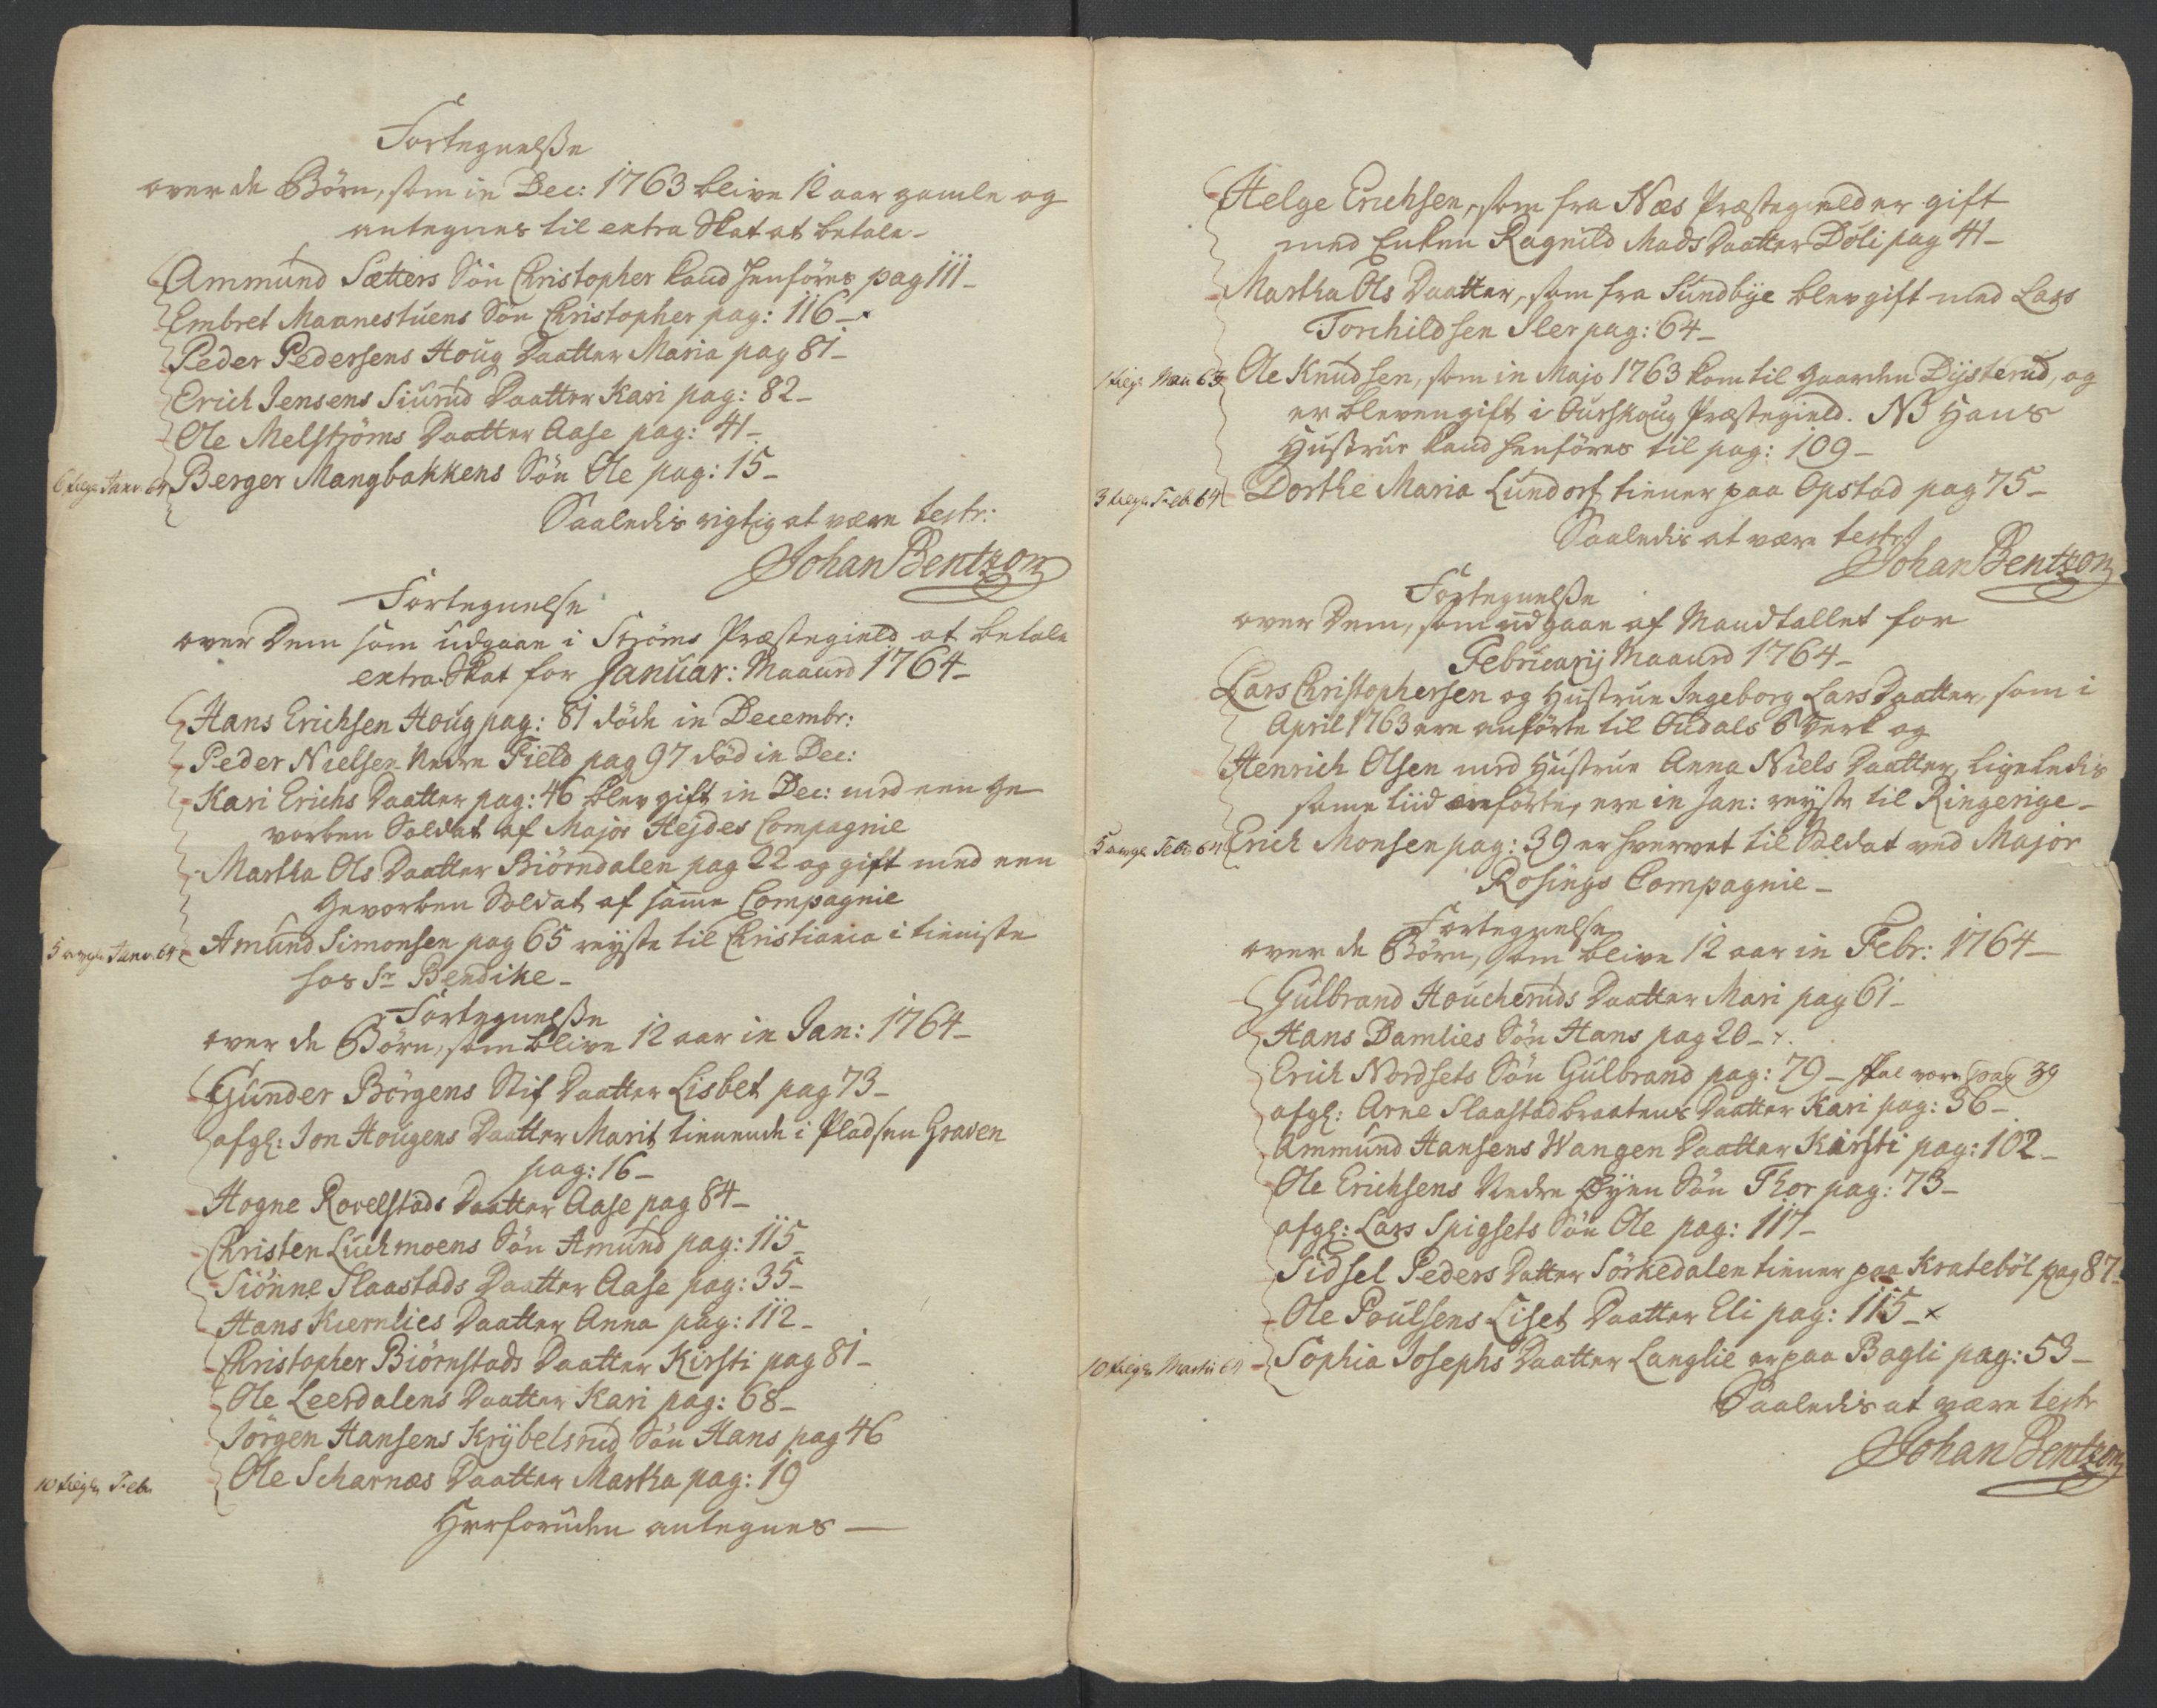 Fortegnelsse
over de Börn, som in Dec: 1763 blive 12 aar gamle og
antegnes til extra Skat at betale -
Ammund Sætters Sön Christopher kand henföres pag 111 -
Embret Maanestuens Sön Christopher pag: 116 - x
Peder Pedersens Houg Daatter Maria pag 81 -
Erich Jensens Siurud Daatter Kari pag: 82 -
Ole Melströms Daatter Aase pag: 41 -
6 tilgr. Janv. 64 Berger Mangbakkens Sön Ole pag: 15 -
Saaledis rigtig at være testr:
Johan Bentzon
Fortegnelse
over Dem som udgaae i Ströms Præstegield at betale
extra Skat for Januar: Maaned 1764 -
Hans Erichsen Houg pag: 81 döde in Decembr:
Peder Nielsen Nedre Field pag 97 död in Dec:
Kari Erichs Daatter pag: 46 blev gift in Dec: med een ge
vorben Soldat af Major Hejdes Compagnie
Martha Ols Daatter Biörndalen pag 22 og gift med een
Gevorben Soldat af samme Compagnie
5 avgr Janv. 64 Amund Simonsen pag 65 reyste til Christiania i tieniste
hos Sr Bendike -
Fortegnelsse
over de Börn, som blive 12 aar in Jan: 1764 -
Gunder Börgens Stif Daatter Lisbet pag 73 -
afgl: Jon Hougens Daatter Marit tienende i Pladsen Graven
pag: 16 -
Hogne Rovelstads Daatter Aase pag 84 -
Christen Luchmoens Sön Amund pag: 115 -
Siönne Slaastads Daatter Aase pag: 35 -
Hans Kiernlies Daatter Anna pag: 112 -
Christopher Biörnstads Daatter Kirsti pag 81 -
Ole Leerdalens Daatter Kari pag: 68 -
Jörgen Hansens Krybelsrud Sön Hans pag 46
10 tilgr Feb. Ole Scharnæs Daatter Martha pag: 19
Herforuden antegnes -
Helge Erichsen, som fra Næs Præstegield er gift
med Enken Ragnild Mads Daatter Döli pag 41 -
Martha Ols Daatter, som fra Sundbye blev gift med Lars
Torchildsen Sler pag: 64 -
Ole Knudsen, som in Majo 1763 kom til gaarden Dysterud, og
er bleven gift i Ourskoug Præstegield. NB Hans
Hustrue kand henföres til pag: 109 -
3 tilgr Feb 64 Dorthe Maria Lundorf tiener paa Opstad pag 75 -
Saaledis at være testr
Johan Bentzon
Fortegnelsse
over Dem, som udgaae af Mandtallet for
Februarij Maaned 1764 -
Lars Christophersen og Hustrue Ingeborg Lars Daatter, som i
April 1763 ere anförte til Oudals Verk og
Henrich Olsen med Hustrue Anna Niels Daatter, ligeledis
samme tiid anförte, ere in Jan: reyste til Ringerige -
5 avgr Feb. 64 Erich Monsen pag: 39 er hvervet til Soldat ved Major
Rosings Compagnie -
Fortegnelse
over de Börn, som blive 12 aar in Febr: 1764 -
Gulbrand Houcheruds Daatter Mari pag 61 -
Hans Damlies Sön Hans pag 20 - x.
Erich Nordsets Sön Gulbrand pag: 79 - skal være pag 39
afgl: Arne Slaastadbraatens Daatter Kari pag: 36 -
Ammund Hansens Wangen Daatter Kirsti pag: 102 -
Ole Erichsens Nedre Öyen Sön Thor pag: 73 -
afgl: Lars Spigsets Sön Ole pag: 117 -
Sidsel Peders Datter Sörkedalen tiener paa Krateböl pag 87 -
Ole Poulsens Liset Daatter Eli pag: 115 - x
10 tilgr Martii 64 Sophia Josephs Daatter Langlie er paa Bagli pag: 53 -
Saaledis at være testr
Johan Bentzon